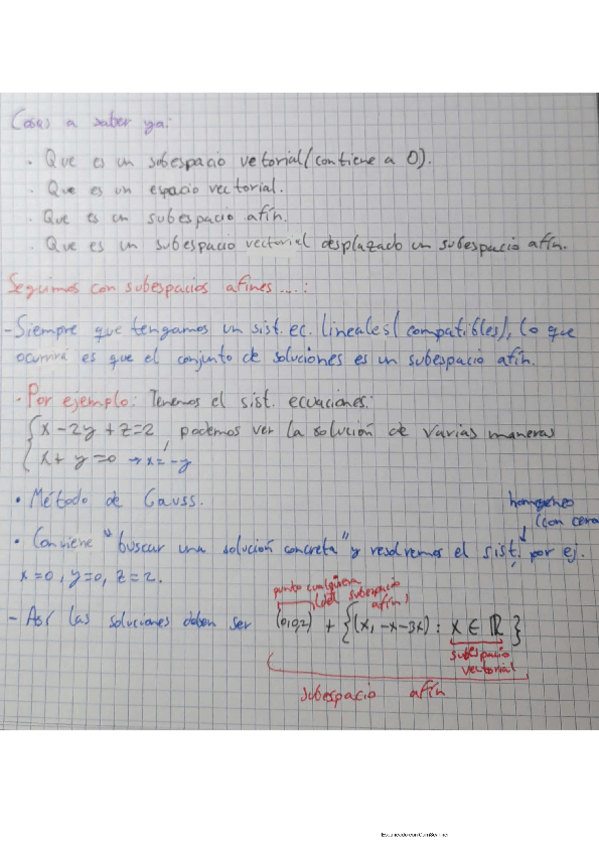 Cosas a saber ya:
· Que es un subespacio vetorial (contiene a 0).
· Que es un espacio vectorial.
· Que es un subespacio afín.
· Que es un subespacio vectorial desplazado un subespacio afín.
Seguimos con subespacios afines ...:
- Siempre que tengamos un sist. ec. lineales (compatibles), lo que
ocurrirá es que el conjunto de soluciones es un subespacio afín.
- Por ejemplo: Tenemos el sist. ecuaciones:
{x - 2y + z = 2, podemos ver la solución de varias maneras
{x + y = 0 → x = -y
• Método de Gauss.
homogéneo
(con cero
• Conviene "buscar una solución concreta" y resolvemos el sist. por ej.
x = 0, y = 0, z = 2.
punto cualquiera
(del subespacio
afín)
- Así las soluciones deben ser (0,0,2) + {(x, -x -3x) : x ∈ ℝ}
subespacio
vectorial
subespacio afín
Escaneado con CamScanner